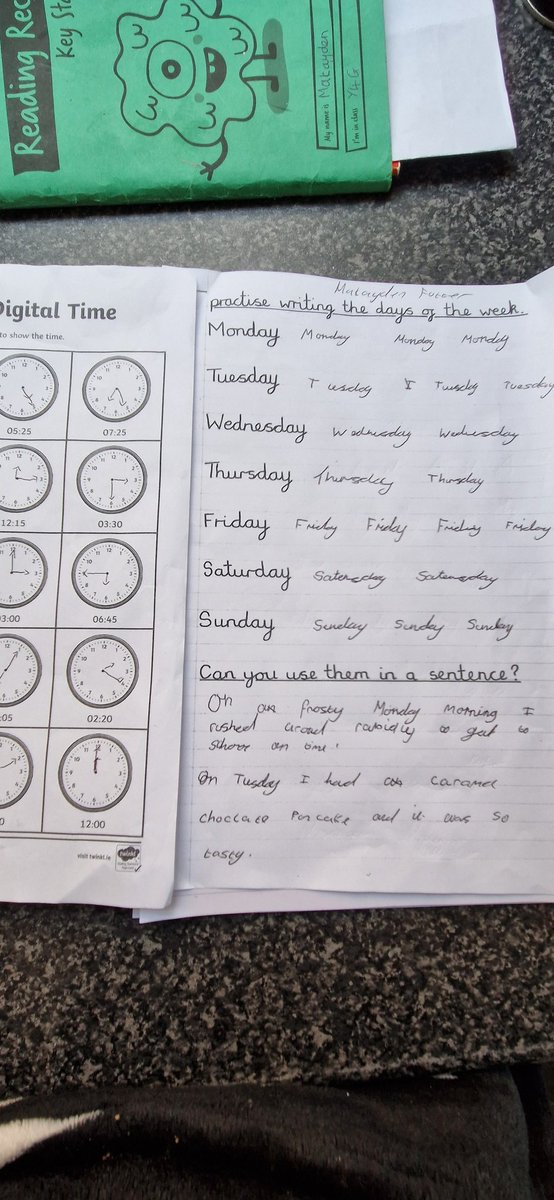 Reading Rec
Key Sta
My name is Makayden
I'm in class Y4G
Digital Time
to show the time.
05:25
07:25
12:15
03:30
3:00
06:45
:05
02:20
0
12:00
visit twinkl.ie
twinkl
Makayden
practise writing the days of the week.
Monday Monday Monday Monday
Tuesday T uesday Tuesdy Tuesday
Wednesday Wednesday Wednesday
Thursday Thursday Thursday
Friday Friday Friday Friday Friday
Saturday Saterday Saterday
Sunday Sunday Sunday Sunday
Can you use them in a sentence?
On frosty Monday morning I
rushed to get to
on time!
On Tusday I had Caramel
choclate Pancake and it was so
tasty.